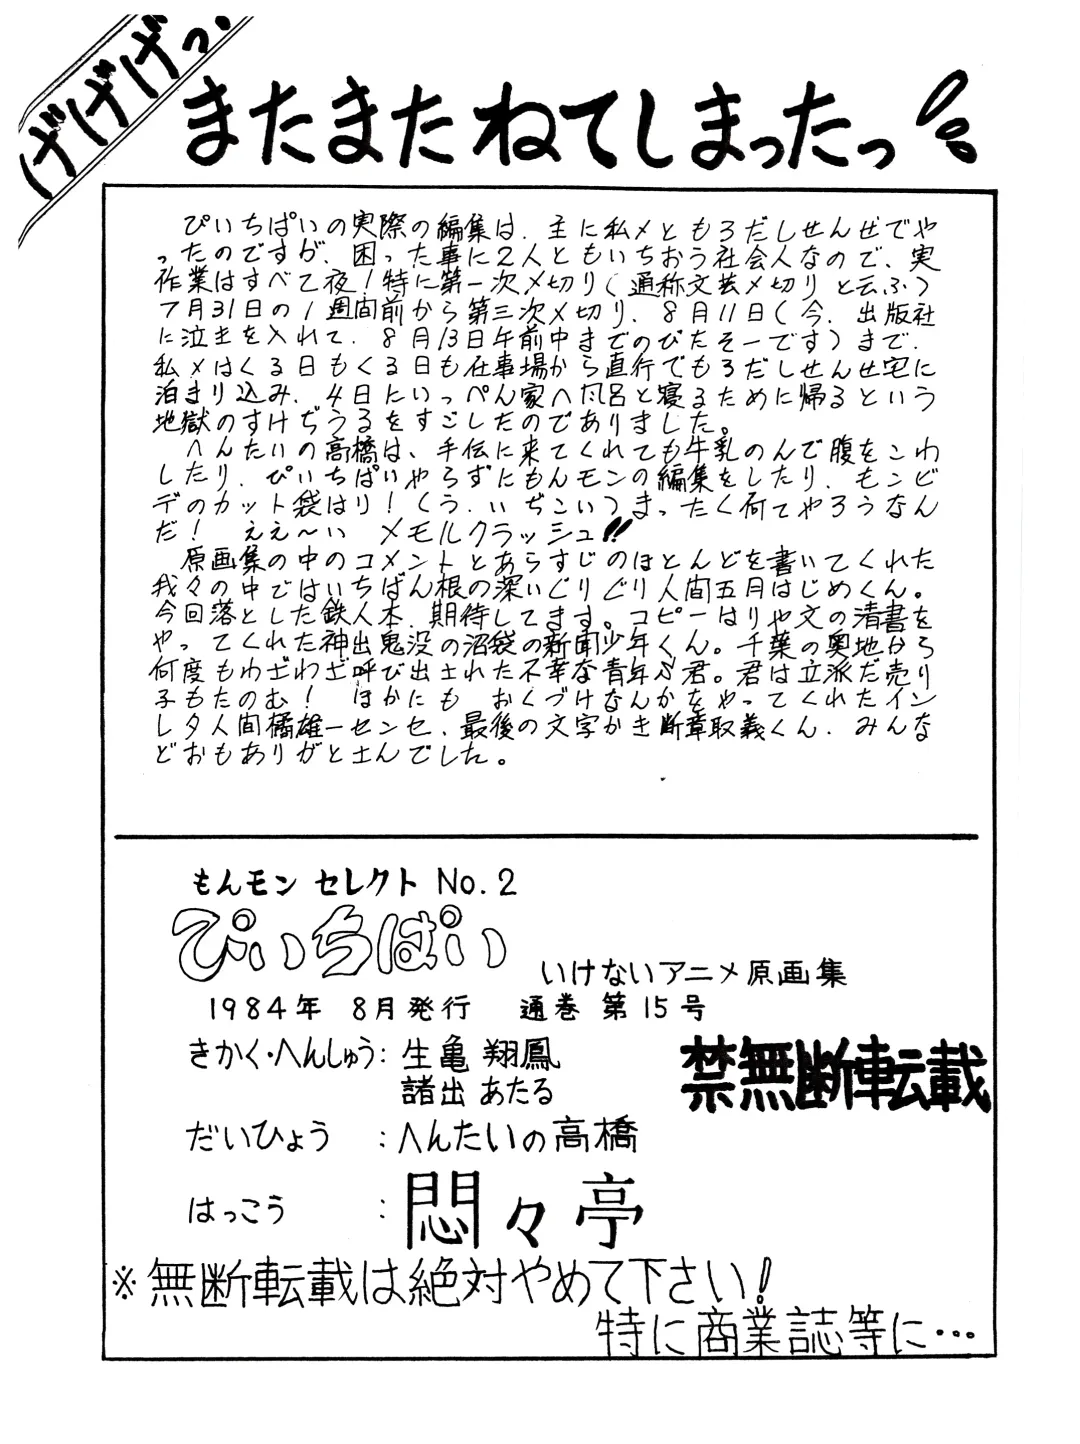 げげげっ、
またまたねてしまったっ
ぴいちぱいの実際の編集は、主に私メともろだしせんせでや
ったのですが、困った事に2人ともいちおう社会人なので、実
作業はすべて夜!特に第一次〆切り(通称文芸〆切りと云ふ)
7月31日の1週間前から第三次〆切り、8月11日(今、出版社
に泣を入れて、8月13日午前中までのびたそーです)まで、
私メはくる日もくる日も仕事場から直行でもろだしせんせ宅に
泊まり込み、4日にいっぺん家へ風呂と寝るために帰るという
地獄のすけぢうるをすごしたのでありました。
へんたいの高橋は、手伝に来てくれても牛乳のんで腹をこわ
したり、ぴいちぱいやらずにもんモンの編集をしたり、モンビ
デのカット袋はり!(う、いぢこい)まったく何てやろうなん
だ! ええ〜い メモルクラッシュ!!
原画集の中のコメントとあらすじのほとんどを書いてくれた
我々の中ではいちばん根の深いぐりぐり人間五月はじめくん。
今回落とした鉄人本、期待してます。コピーはりや文の清書を
やってくれた神出鬼没の沼袋の新聞少年くん。千葉の奥地から
何度もわざわざ呼び出された不幸な青年S君。君は立派だ売り
子もたのむ! ほかにも おくづけなんかをやってくれたイン
レタ人間橘雄一センセ、最後の文字かき断章取義くん、みんな
どおもありがとさんでした。
もんモン セレクト No.2
ぴいちぱい
いけないアニメ原画集
1984年 8月発行 通巻 第15号
きかく・へんしゅう:生亀 翔鳳
諸出 あたる
禁無断転載
だいひょう :へんたいの高橋
はっこう :悶々亭
※無断転載は絶対やめて下さい!
特に商業誌等に…